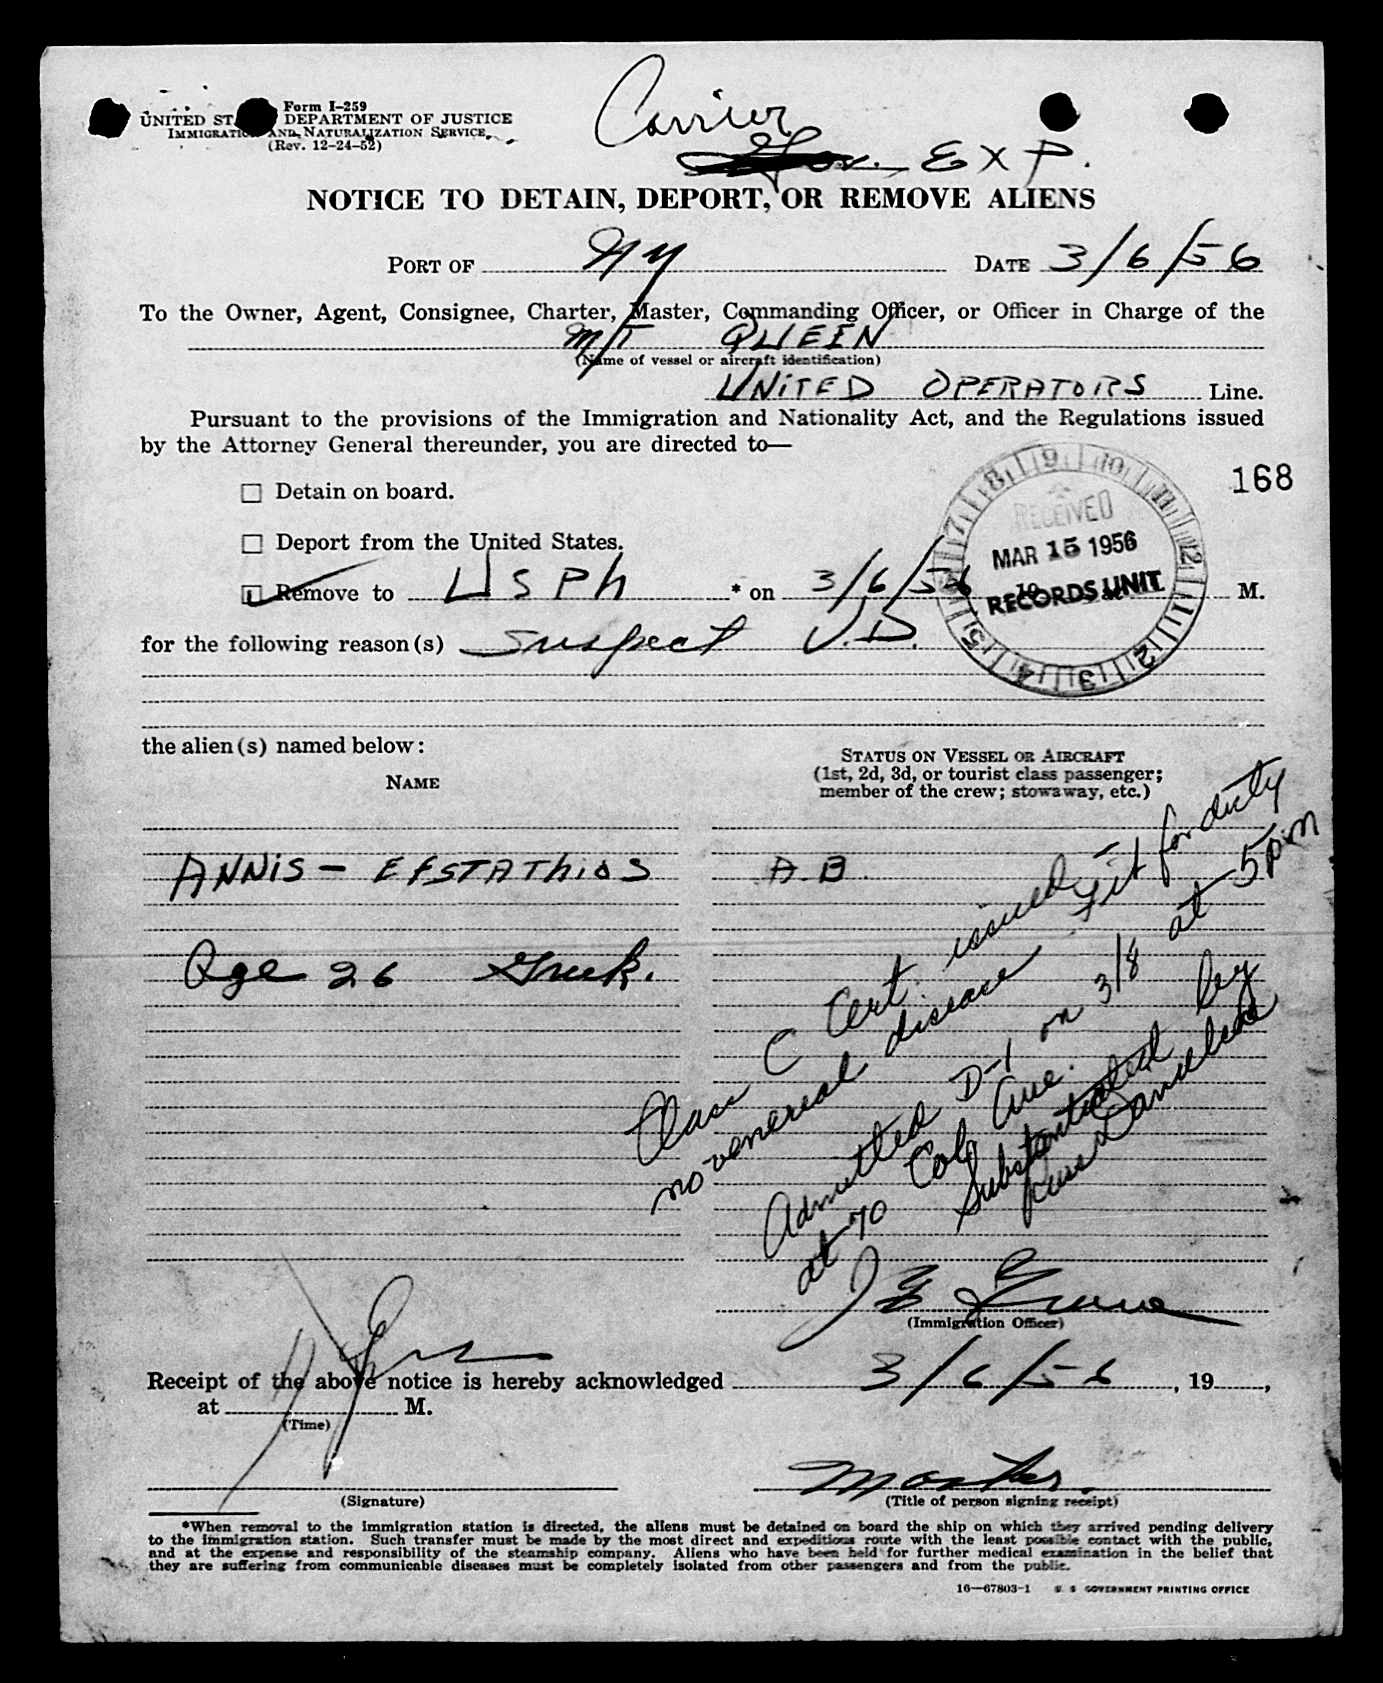 Form I-259
UNITED ST DEPARTMENT OF JUSTICE
IMMIGRATION AND NATURALIZATION SERVICE
(Rev. 12-24-52)
Carrier
Gov. EXP.
NOTICE TO DETAIN, DEPORT, OR REMOVE ALIENS
PORT OF NY DATE 3/6/56
To the Owner, Agent, Consignee, Charter, Master, Commanding Officer, or Officer in Charge of the
M/T QUEEN
(Name of vessel or aircraft identification)
UNITED OPERATORS Line.
Pursuant to the provisions of the Immigration and Nationality Act, and the Regulations issued
by the Attorney General thereunder, you are directed to—
168
☐ Detain on board.
☐ Deport from the United States.
Remove to USPH * on 3/6/56 19 M.
RECEIVED
MAR 15 1956
RECORDS UNIT
7 8 9 10 11 12 1 2 3 4 5
for the following reason(s) Suspect V.D.
the alien(s) named below:
NAME
STATUS ON VESSEL OR AIRCRAFT
(1st, 2d, 3d, or tourist class passenger;
member of the crew; stowaway, etc.)
ANNIS - EFSTATHIOS A.B.
Age 26 Greek.
Class C Cert. issued - Fit for duty
no venereal disease
Admitted D-1 on 3/8 at 5 pm
at 70 Col Ave.
Substantiated by
(Immigration Officer)
Receipt of the above notice is hereby acknowledged 3/6/56, 19 ,
at M.
(Time)
Master.
(Signature) (Title of person signing receipt)
*When removal to the immigration station is directed, the aliens must be detained on board the ship on which they arrived pending delivery
to the immigration station. Such transfer must be made by the most direct and expeditious route with the least possible contact with the public,
and at the expense and responsibility of the steamship company. Aliens who have been held for further medical examination in the belief that
they are suffering from communicable diseases must be completely isolated from other passengers and from the public.
16—67803-1 U S GOVERNMENT PRINTING OFFICE